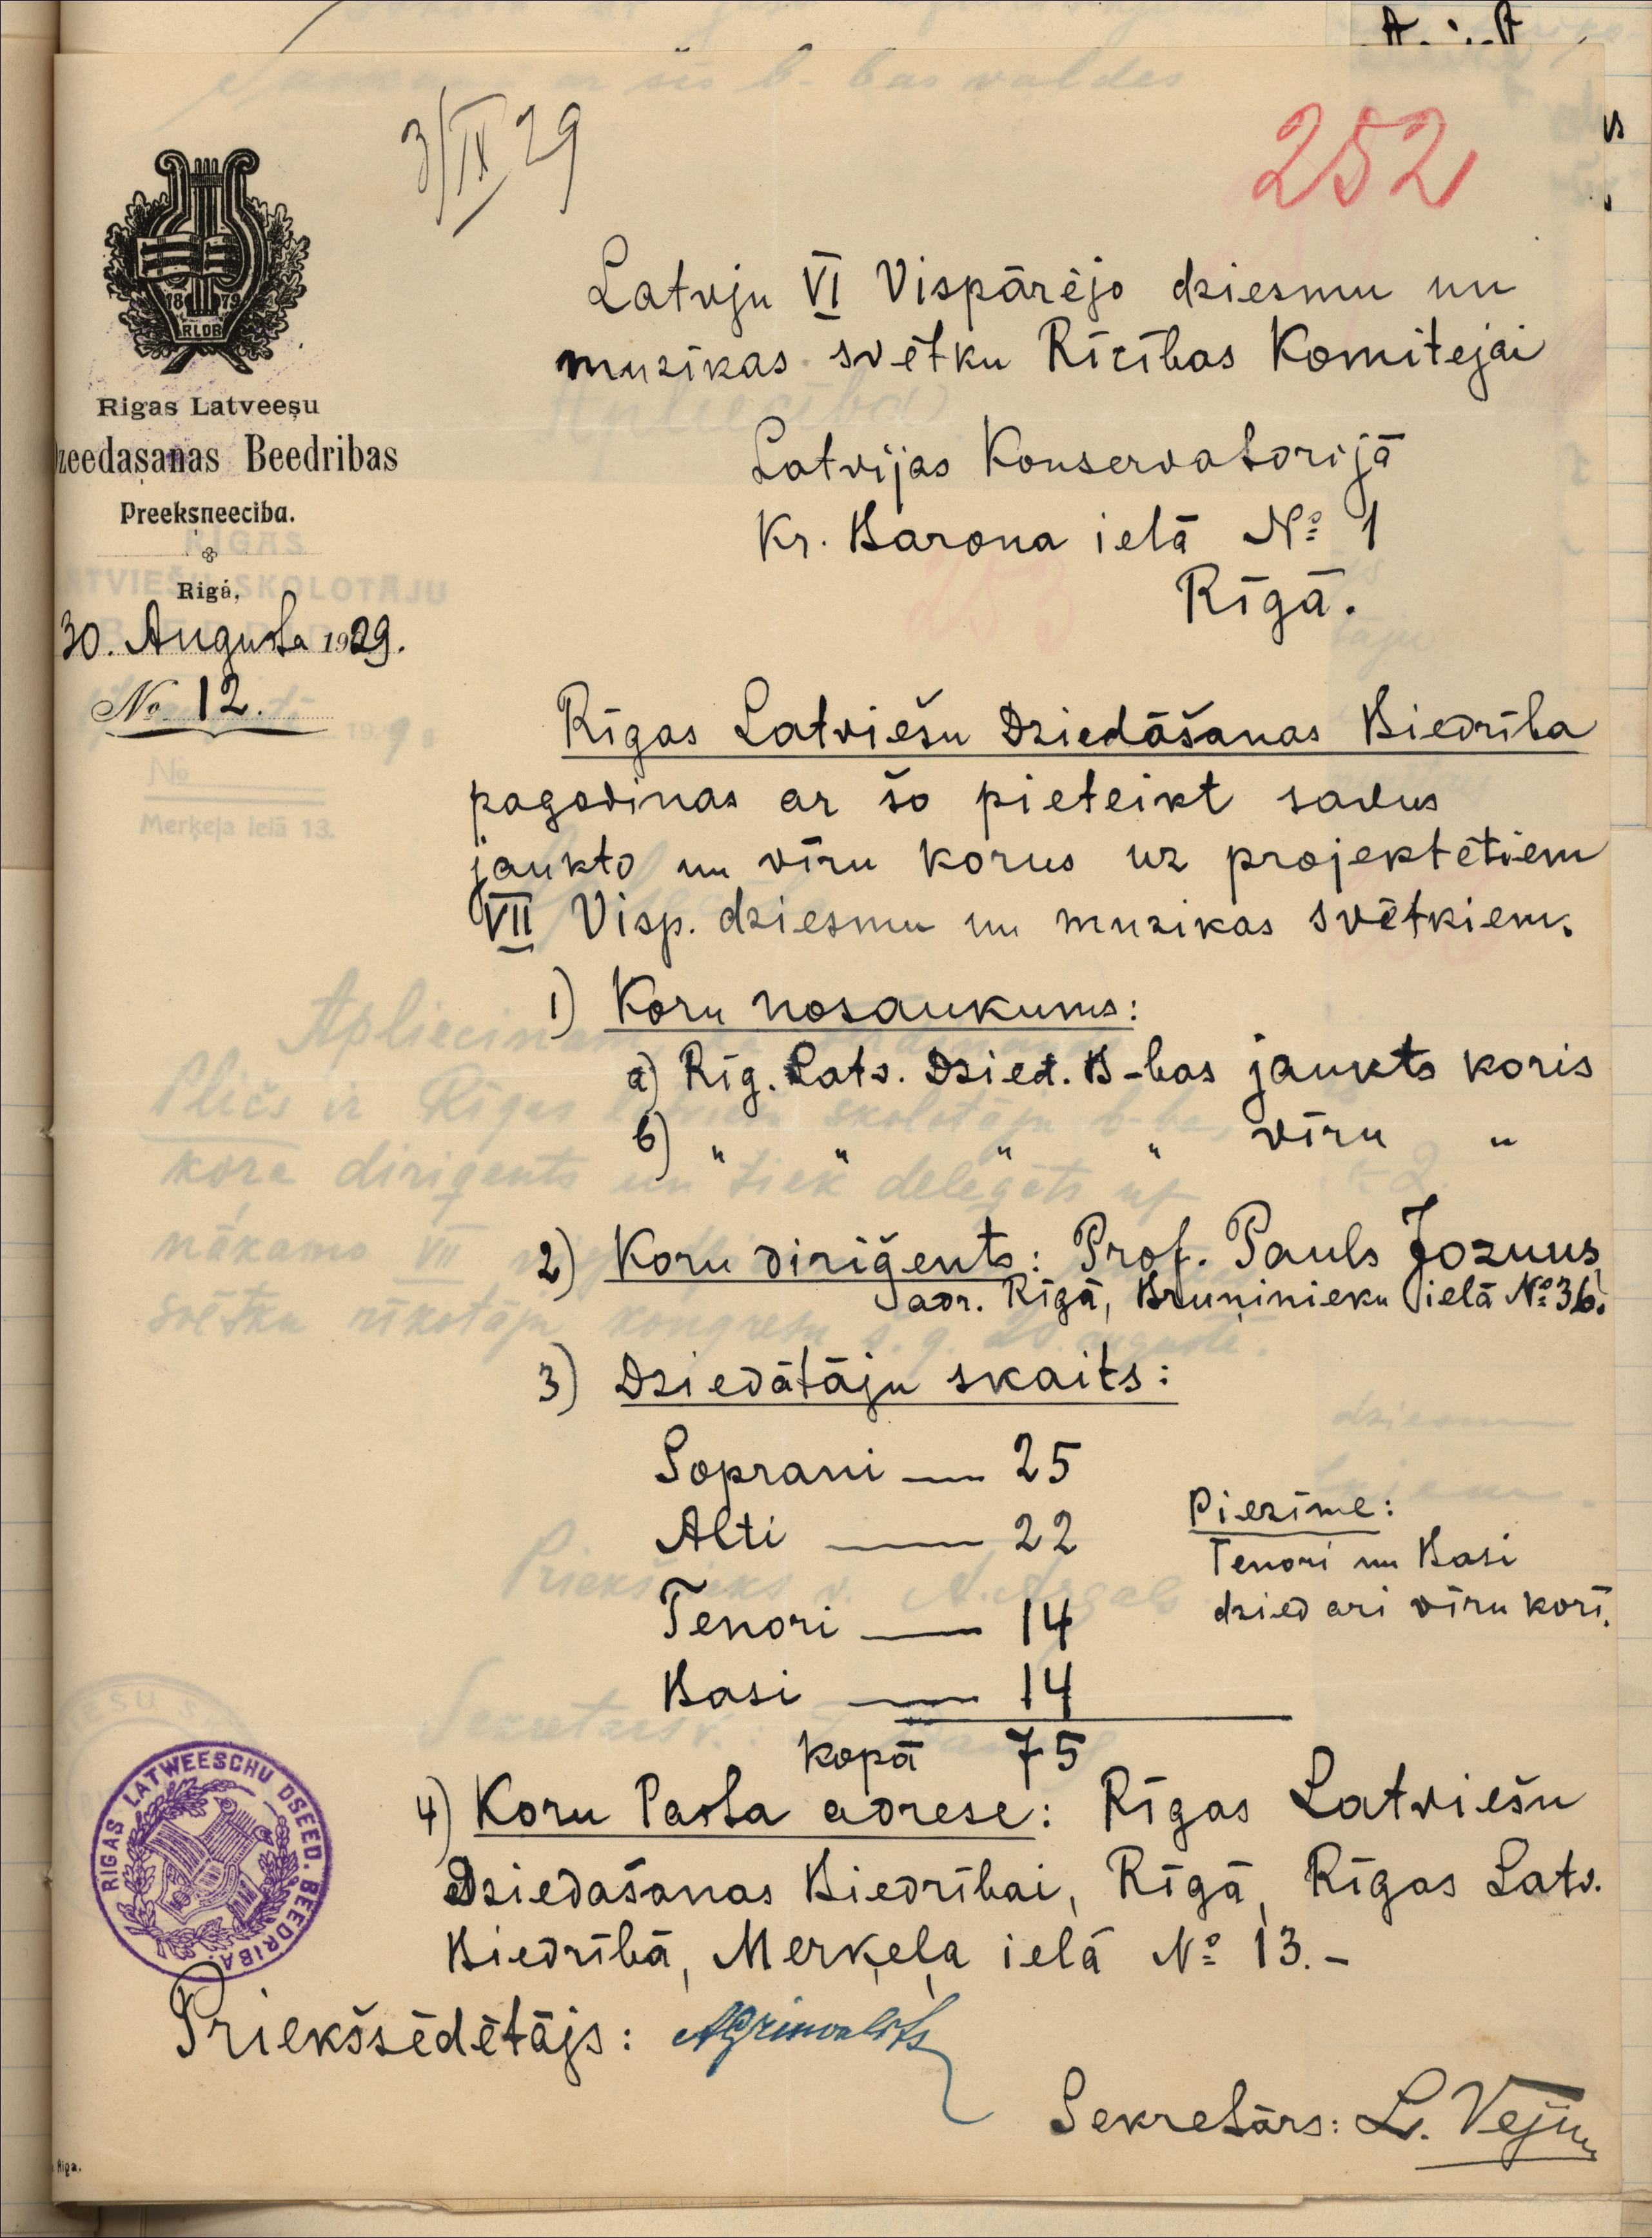 3/IX 29
252
1879
RLDB
Rigas Latveeşu
zeedaşanas Beedribas
Preekşneeciba.
Rigá,
30. Augusta 1929.
No. 12.
Latvju VI Vispārējo dziesmu un
muzikas svētku Rīcības Komitejai
Latvijas Konservatorijā
Kr. Barona ielā № 1
Rīgā.
Rīgas Latviešu Dziedāšanas Biedrība
pagodinas ar šo pieteikt savus
jaukto un vīru korus uz projektētiem
VII Visp. dziesmu un muzikas svētkiem.
1) Koru nosaukums:
a) Rīg. Latv. Dzied. B-bas jaukts koris
b) " " " " vīru "
2) Koru diriģents: Prof. Pauls Jozuus,
adr. Rīgā, Bruņinieku ielā № 36.
3) Dziedātāju skaits:
Soprani — 25
Alti — 22
Tenori — 14
Basi — 14
kopā 75
Piezīme:
Tenori un Basi
dzied arī vīru korī.
4) Koru Pasta adrese: Rīgas Latviešu
Dziedašanas Biedrībai, Rīgā, Rīgas Latv.
Biedrībā, Merķeļa ielā № 13.-
RIGAS LATWEESCHU DSEED. BEEDRIBA.
Priekšsēdētājs: AGrinvalds
Sekretārs: L. Vējiņ
Riga.